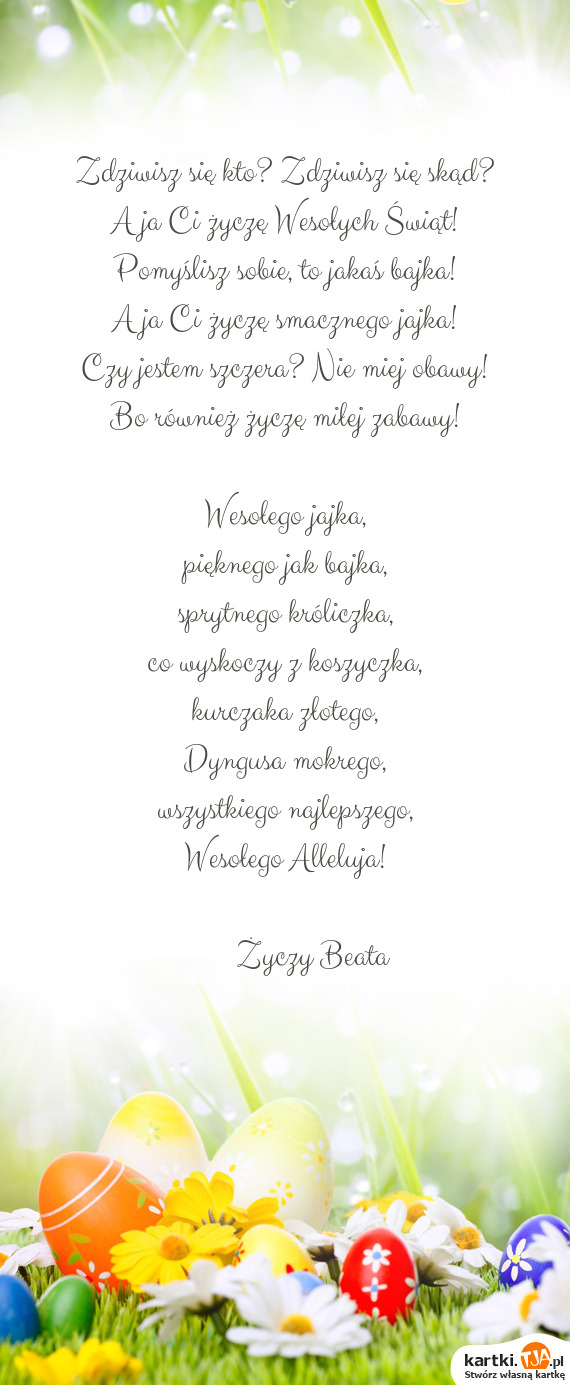 Zdziwisz się kto? Zdziwisz się skąd?
A ja Ci życzę Wesołych Świąt!
Pomyślisz sobie, to jakaś bajka!
A ja Ci życzę smacznego jajka!
Czy jestem szczera? Nie miej obawy!
Bo również życzę miłej zabawy!
Wesołego jajka,
pięknego jak bajka,
sprytnego króliczka,
co wyskoczy z koszyczka,
kurczaka złotego,
Dyngusa mokrego,
wszystkiego najlepszego,
Wesołego Alleluja!
Życzy Beata
kartki.TJA.pl
Stwórz własną kartkę